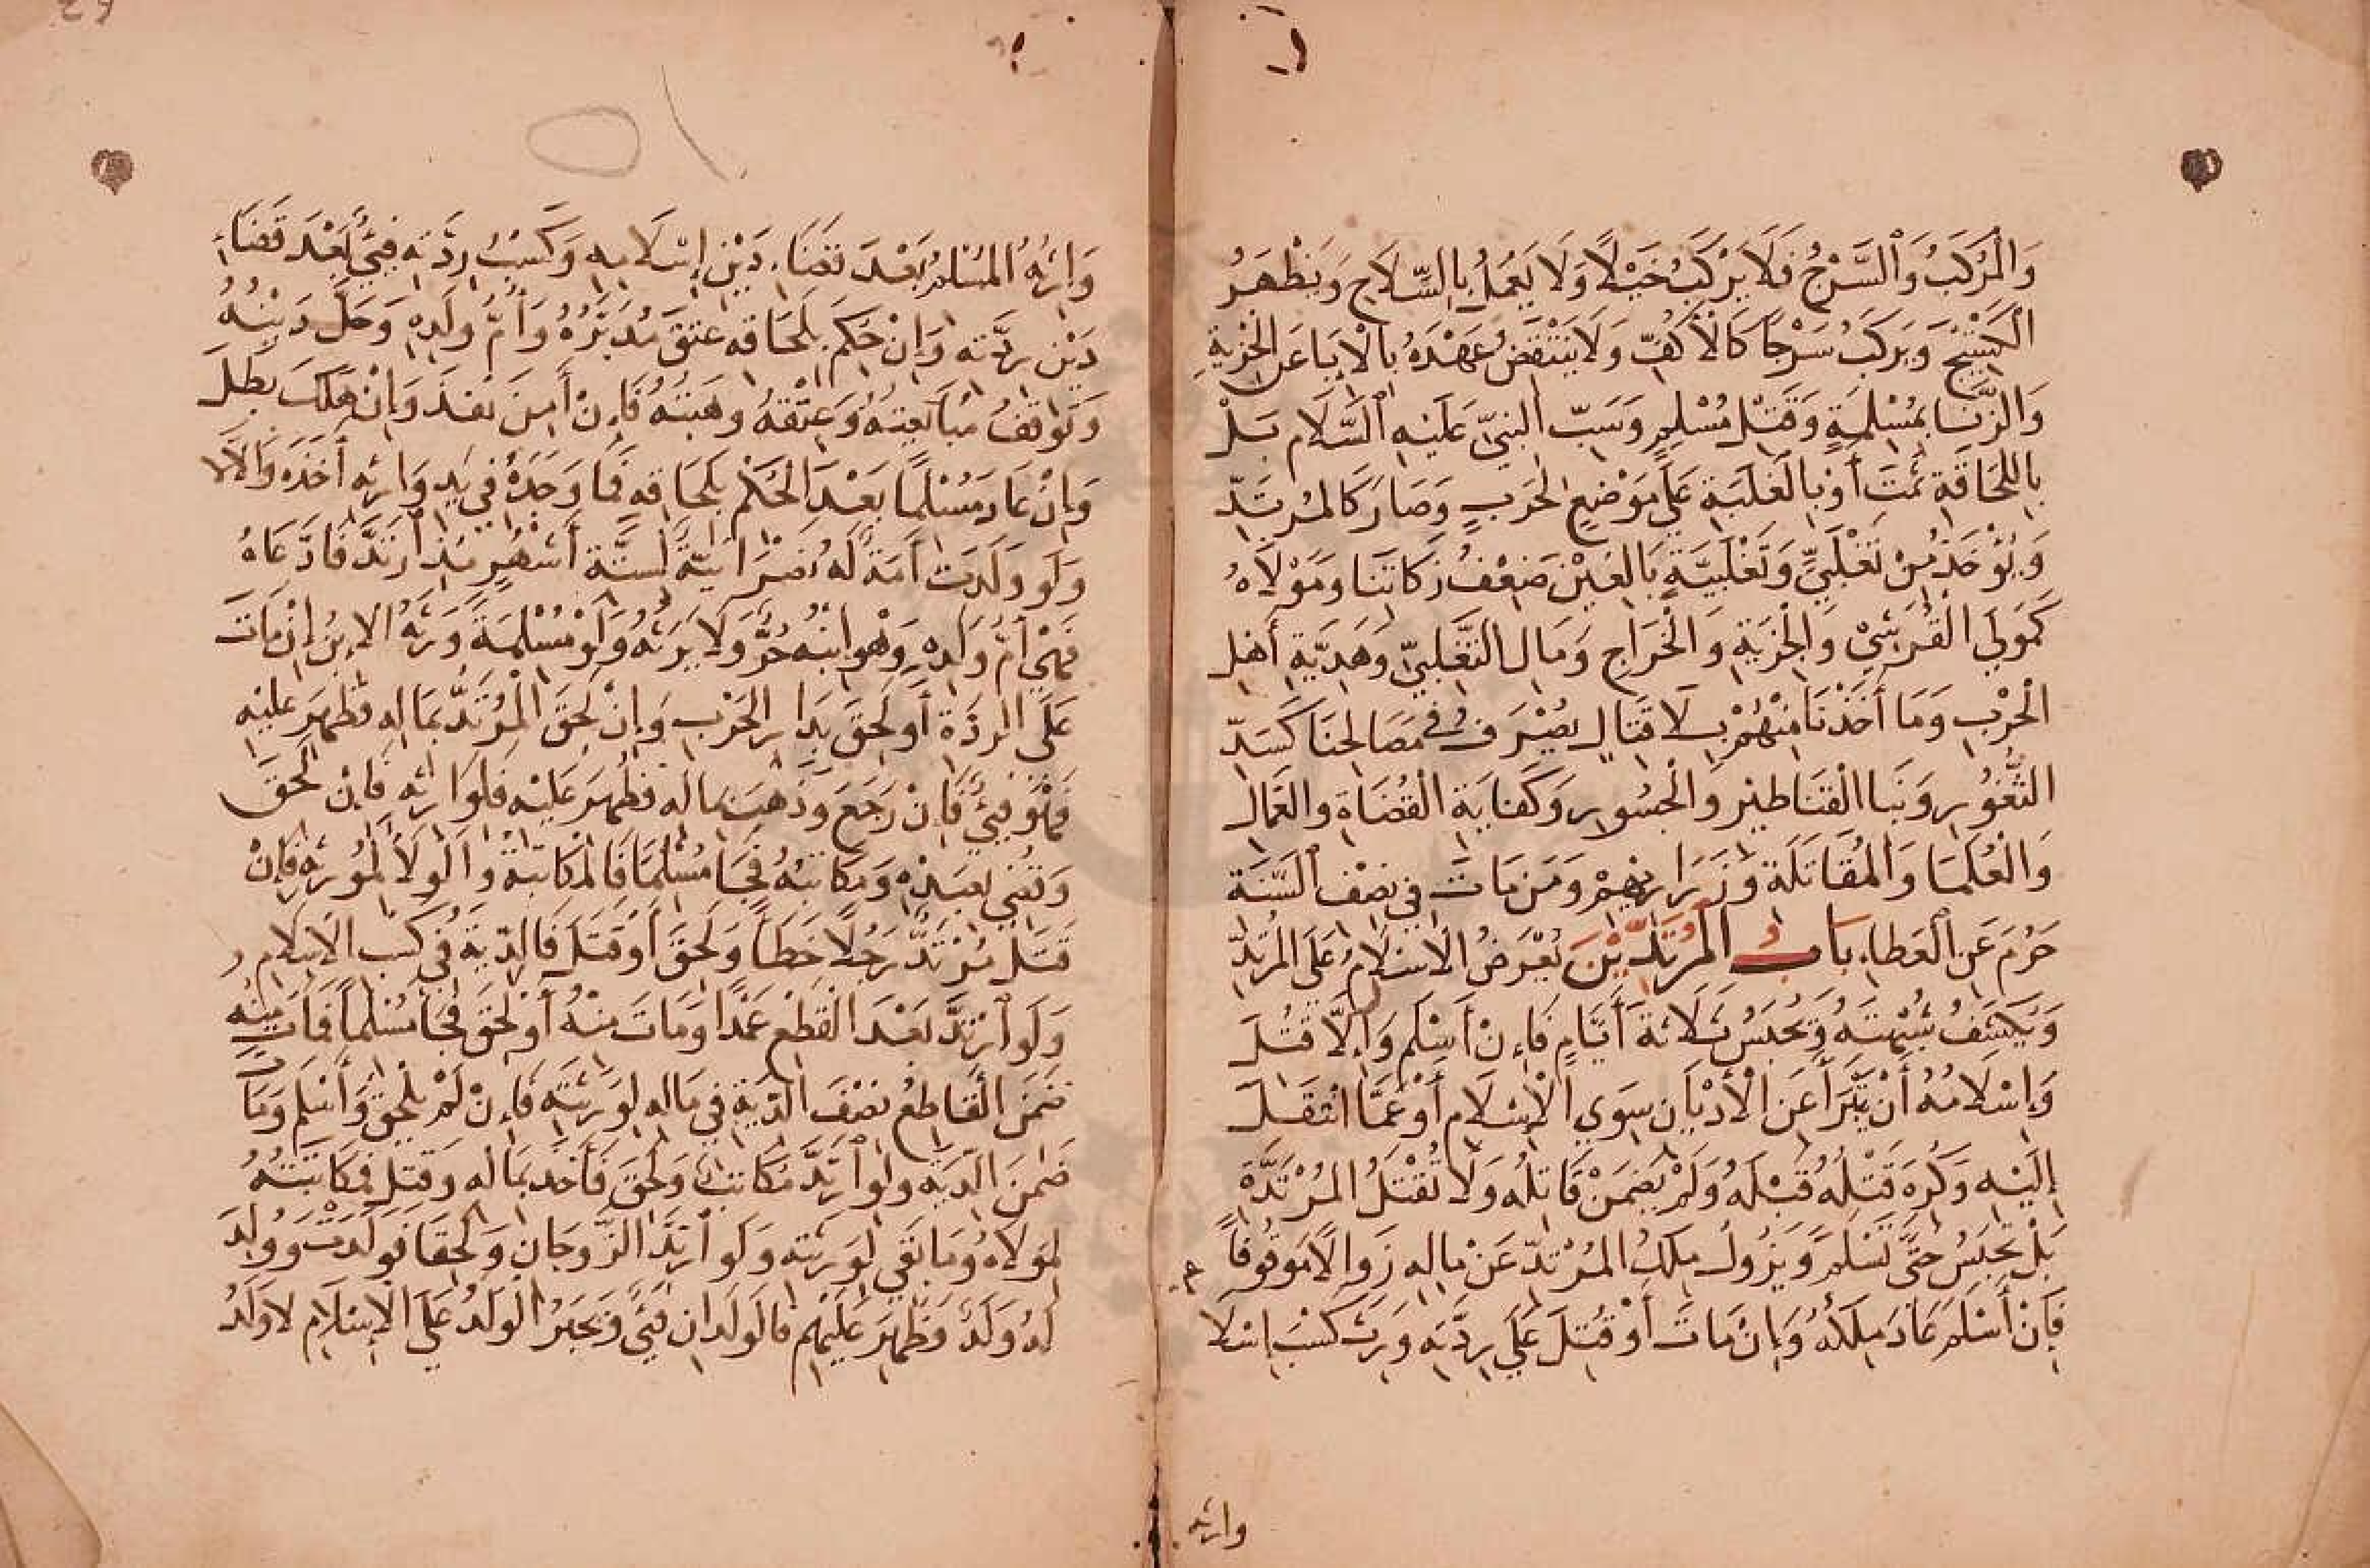 وَالْمَرْكَبُ وَالسَّرْجُ فَلَا يَرْكَبُ خَيْلًا وَلَا يَعْمَلُ بِالسِّلَاحِ وَيُظْهِرُ
الْكُسْتِيجَ وَيَرْكَبُ سَرْجًا كَالْأَكُفِّ وَلَا يَنْتَقِضُ عَهْدُهُ بِالْإِبَا عَنِ الْجِزْيَةِ
وَالزِّنَا بِمُسْلِمَةٍ وَقَتْلِ مُسْلِمٍ وَسَبِّ النَّبِيِّ عَلَيْهِ السَّلَام بَلْ
بِاللَّحَاقَةِ ثَمَّتَ أَوْ بِالْغَلَبَةِ عَلَى مَوْضِعٍ لِحَرْبٍ وَصَارَ كَالْمُرْتَدِّ
وَيُؤْخَذُ مِنْ تَغْلَبِيٍّ وَتَغْلَبِيَّةٍ بَالِغَيْنِ ضِعْفُ زَكَاتِنَا وَمَوْلَاهُ
كَمَوْلَى الْقُرَشِيِّ وَالْجِزْيَةِ وَالْخَرَاجِ وَمَالِ التَّغْلَبِيِّ وَهَدِيَّةِ أَهْلِ
الْحَرْبِ وَمَا أَخَذْنَا مِنْهُمْ بِلَا قِتَالٍ يُصْرَفُ فِي مَصَالِحِنَا كَسَدِّ
الثُّغُورِ وَبِنَا الْقَنَاطِيرِ وَالْجُسُورِ وَكِفَايَةِ الْقُضَاةِ وَالْعُمَّالِ
وَالْعُلَمَا وَالْمُقَاتِلَةِ وَذَرَارِيهِمْ وَمَنْ مَاتَ فِي نِصْفِ السَّنَةِ
حُرِمَ عَنِ الْعَطَاءِ بَابُ الْمُرْتَدِّيْنَ يُعْرَضُ الْإِسْلَامُ عَلَى الْمُرْتَدِّ
وَيُكْشَفُ شُبْهَتُهُ وَيُحْبَسُ ثَلَاثَةَ أَيَّامٍ فَإِنْ أَسْلَمَ وَإِلَّا قُتِلَ
وَإِسْلَامُهُ أَنْ يَتَبَرَّأَ عَنِ الْأَدْيَانِ سِوَى الْإِسْلَامِ أَوْ عَمَّا انْتَقَلَ
إِلَيْهِ وَكُرِهَ قَتْلُهُ قَبْلَهُ وَلَمْ يَضْمَنْ قَاتِلُهُ وَلَا تُقْتَلُ الْمُرْتَدَّةُ
بَلْ تُحْبَسُ حَتَّى تُسْلِمَ وَيَزُولُ مِلْكُ الْمُرْتَدِّ عَنْ مَالِهِ زَوَالًا مَوْقُوفًا
فَإِنْ أَسْلَمَ عَادَ مِلْكُهُ وَإِنْ مَاتَ أَوْ قُتِلَ عَلَى رِدَّتِهِ وَرِثَ كَسْبَ إِسْلَا
وارثه
وَارِثُهُ الْمُسْلِمُ بَعْدَ قَضَاءِ دَيْنِ إِسْلَامِهِ وَكَسْبُ رِدَّتِهِ فَيْئٌ بَعْدَ قَضَاءِ
دَيْنِ رِدَّتِهِ وَإِنْ حُكِمَ بِلَحَاقِهِ عَتَقَ مُدَبَّرُهُ وَأُمُّ وَلَدِهِ وَحَلَّ دَيْنُهُ
وَتُوقَفُ مُبَايَعَتُهُ وَعِتْقُهُ وَهِبَتُهُ فَإِنْ أَمِنَ نَفَذَ وَإِنْ هَلَكَ بَطَلَ
وَإِنْ عَادَ مُسْلِمًا بَعْدَ الْحُكْمِ بِلَحَاقِهِ فَمَا وَجَدَهُ فِي يَدِ وَارِثِهِ أَخَذَهُ وَإِلَّا لَا
وَلَو وَلَدَتْ أَمَةٌ لَهُ نَصْرَانِيَّةٌ لِسِتَّةِ أَشْهُرٍ مُنْذُ ارْتَدَّ فَادَّعَاهُ
فَهِيَ أُمُّ وَلَدِهِ وَهُوَ ابْنُهُ حُرٌّ وَلَا يَرِثُهُ وَلَوْ مُسْلِمَةً وَرِثَهُ الْإِبْنُ إِنْ مَاتَ
عَلَى الرِّدَّةِ أَوْ لَحِقَ بِدَارِ الْحَرْبِ وَإِنْ لَحِقَ الْمُرْتَدُّ بِمَالِهِ فَظُهِرَ عَلَيْهِ
فَهُوَ فَيْئٌ فَإِنْ رَجَعَ وَذَهَبَ بِمَالِهِ فَظُهِرَ عَلَيْهِ فَلِوَارِثِهِ فَإِنْ لَحِقَ
وَقُضِيَ بِعَبْدِهِ وَمُكَاتَبُهُ فَجَا مُسْلِمًا فَالْمُكَاتَبَةُ وَالْوَلَأُ لِمُوَرِّثِهِ فَإِنْ
قَتَلَ مُرْتَدٌّ رَجُلًا خَطَأً وَلَحِقَ أَوْ قُتِلَ فَالدِّيَةُ فِي كَسْبِ الْإِسْلَامِ
وَلَوِ ارْتَدَّ بَعْدَ الْقَطْعِ عَمْدًا وَمَاتَ مِنْهُ أَوْ لَحِقَ فَجَأَ مُسْلِمًا فَمَاتَ مِنْهُ
ضَمِنَ الْقَاطِعُ نِصْفَ الدِّيَةِ فِي مَالِهِ لِوَرَثَتِهِ فَإِنْ لَمْ يَلْحَقْ وَأَسْلَمَ وَمَاتَ
ضَمِنَ الدِّيَةَ وَلَوِ ارْتَدَّ مُكَاتَبٌ وَلَحِقَ فَأُخِذَ بِمَالِهِ وَقُتِلَ فَمُكَاتَبَتُهُ
لِمَوْلَاهُ وَمَا بَقِيَ لِوَرَثَتِهِ وَلَوِ ارْتَدَّ الزَّوْجَانِ وَلَحِقَا فَوَلَدَتْ وَوُلِدَ
لَهُ وَلَدٌ وَظُهِرَ عَلَيْهِم فَالْوَلَدَانِ فَيْئٌ وَيُجْبَرُ الْوَلَدُ عَلَى الْإِسْلَامِ لَا وَلَدُ